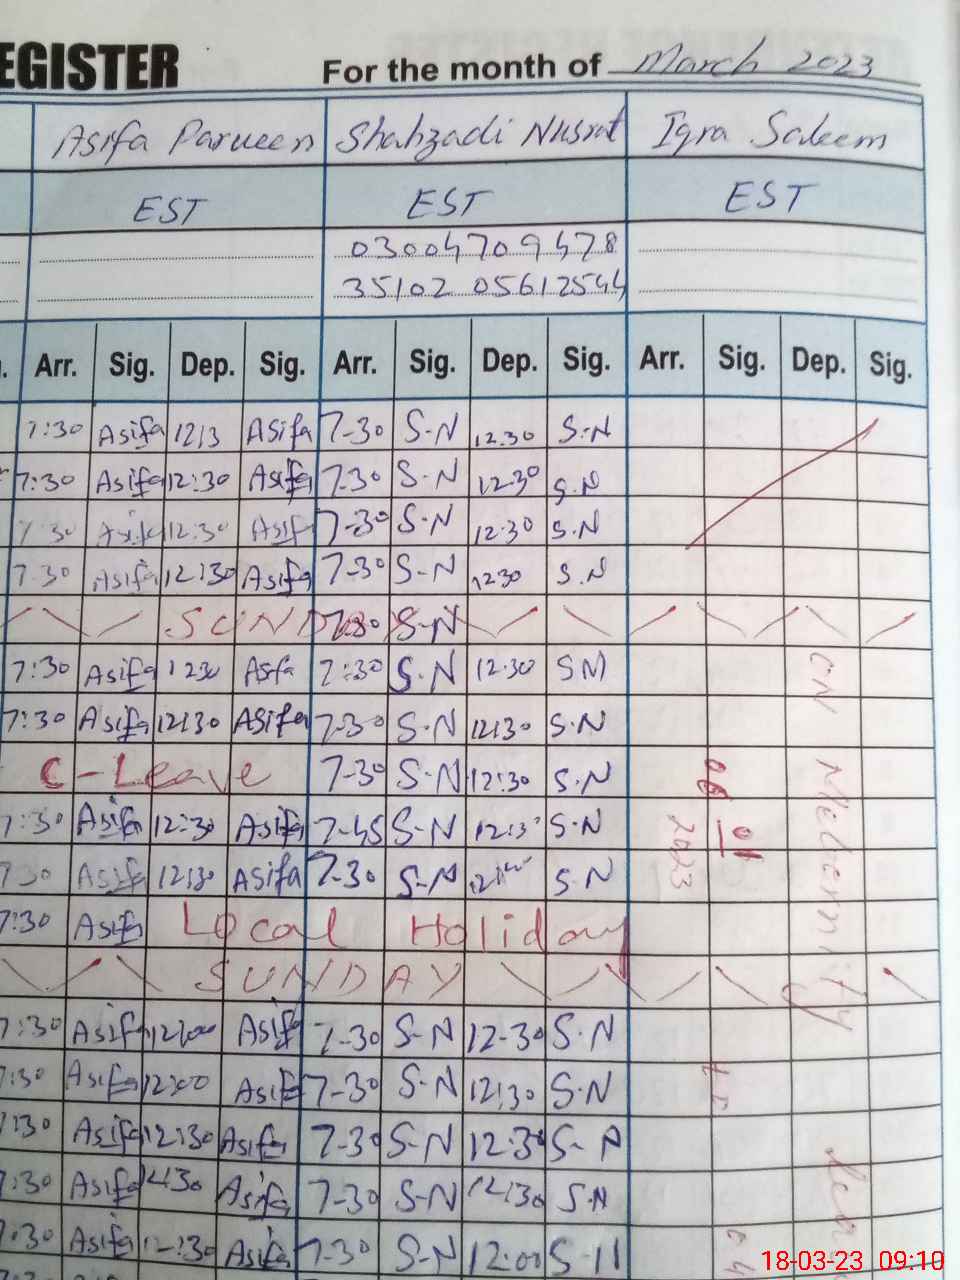 EGISTER For the month of March 2023
Asifa Parveen Shahzadi Nusrat Iqra Saleem
EST EST EST
03004709478
35102 05612544
. Arr. Sig. Dep. Sig. Arr. Sig. Dep. Sig. Arr. Sig. Dep. Sig.
7:30 Asifa 1213 Asifa 7-30 S-N 12.30 S.N
7:30 Asifa 12:30 Asifa 7-30 S-N 1230 S.N
7:30 Asifa 12:30 Asif 7-30 S-N 12.30 S.N
7:30 Asifa 12130 Asifa 7-30 S-N 1230 S.N
SUNDAY 7-30 S-N
7:30 Asifa 1230 Asfa 7:30 S.N 12.30 SN
7:30 Asifa 12130 Asifa 7-30 S-N 12130 S.N
C-Leave 7-30 S-N 12:30 S.N
7:30 Asifa 12:30 Asifa 7-45 S-N S.N
7:30 Asifa 12130 Asifa 7-30 S-N S.N
7:30 Asifa Local Holiday
SUNDAY
7:30 Asifa Asifa 7-30 S-N 12-30 S.N
7:30 Asifa 12:00 Asifa 7-30 S-N 12130 S.N
7:30 Asifa 12:30 Asifa 7-30 S-N 12:30 S-N
7:30 Asifa Asifa 7-30 S-N S.N
7:30 Asifa Asifa 7-30 S-N 12:00
ON
06
01
2023
to
04
18-03-23 09:10